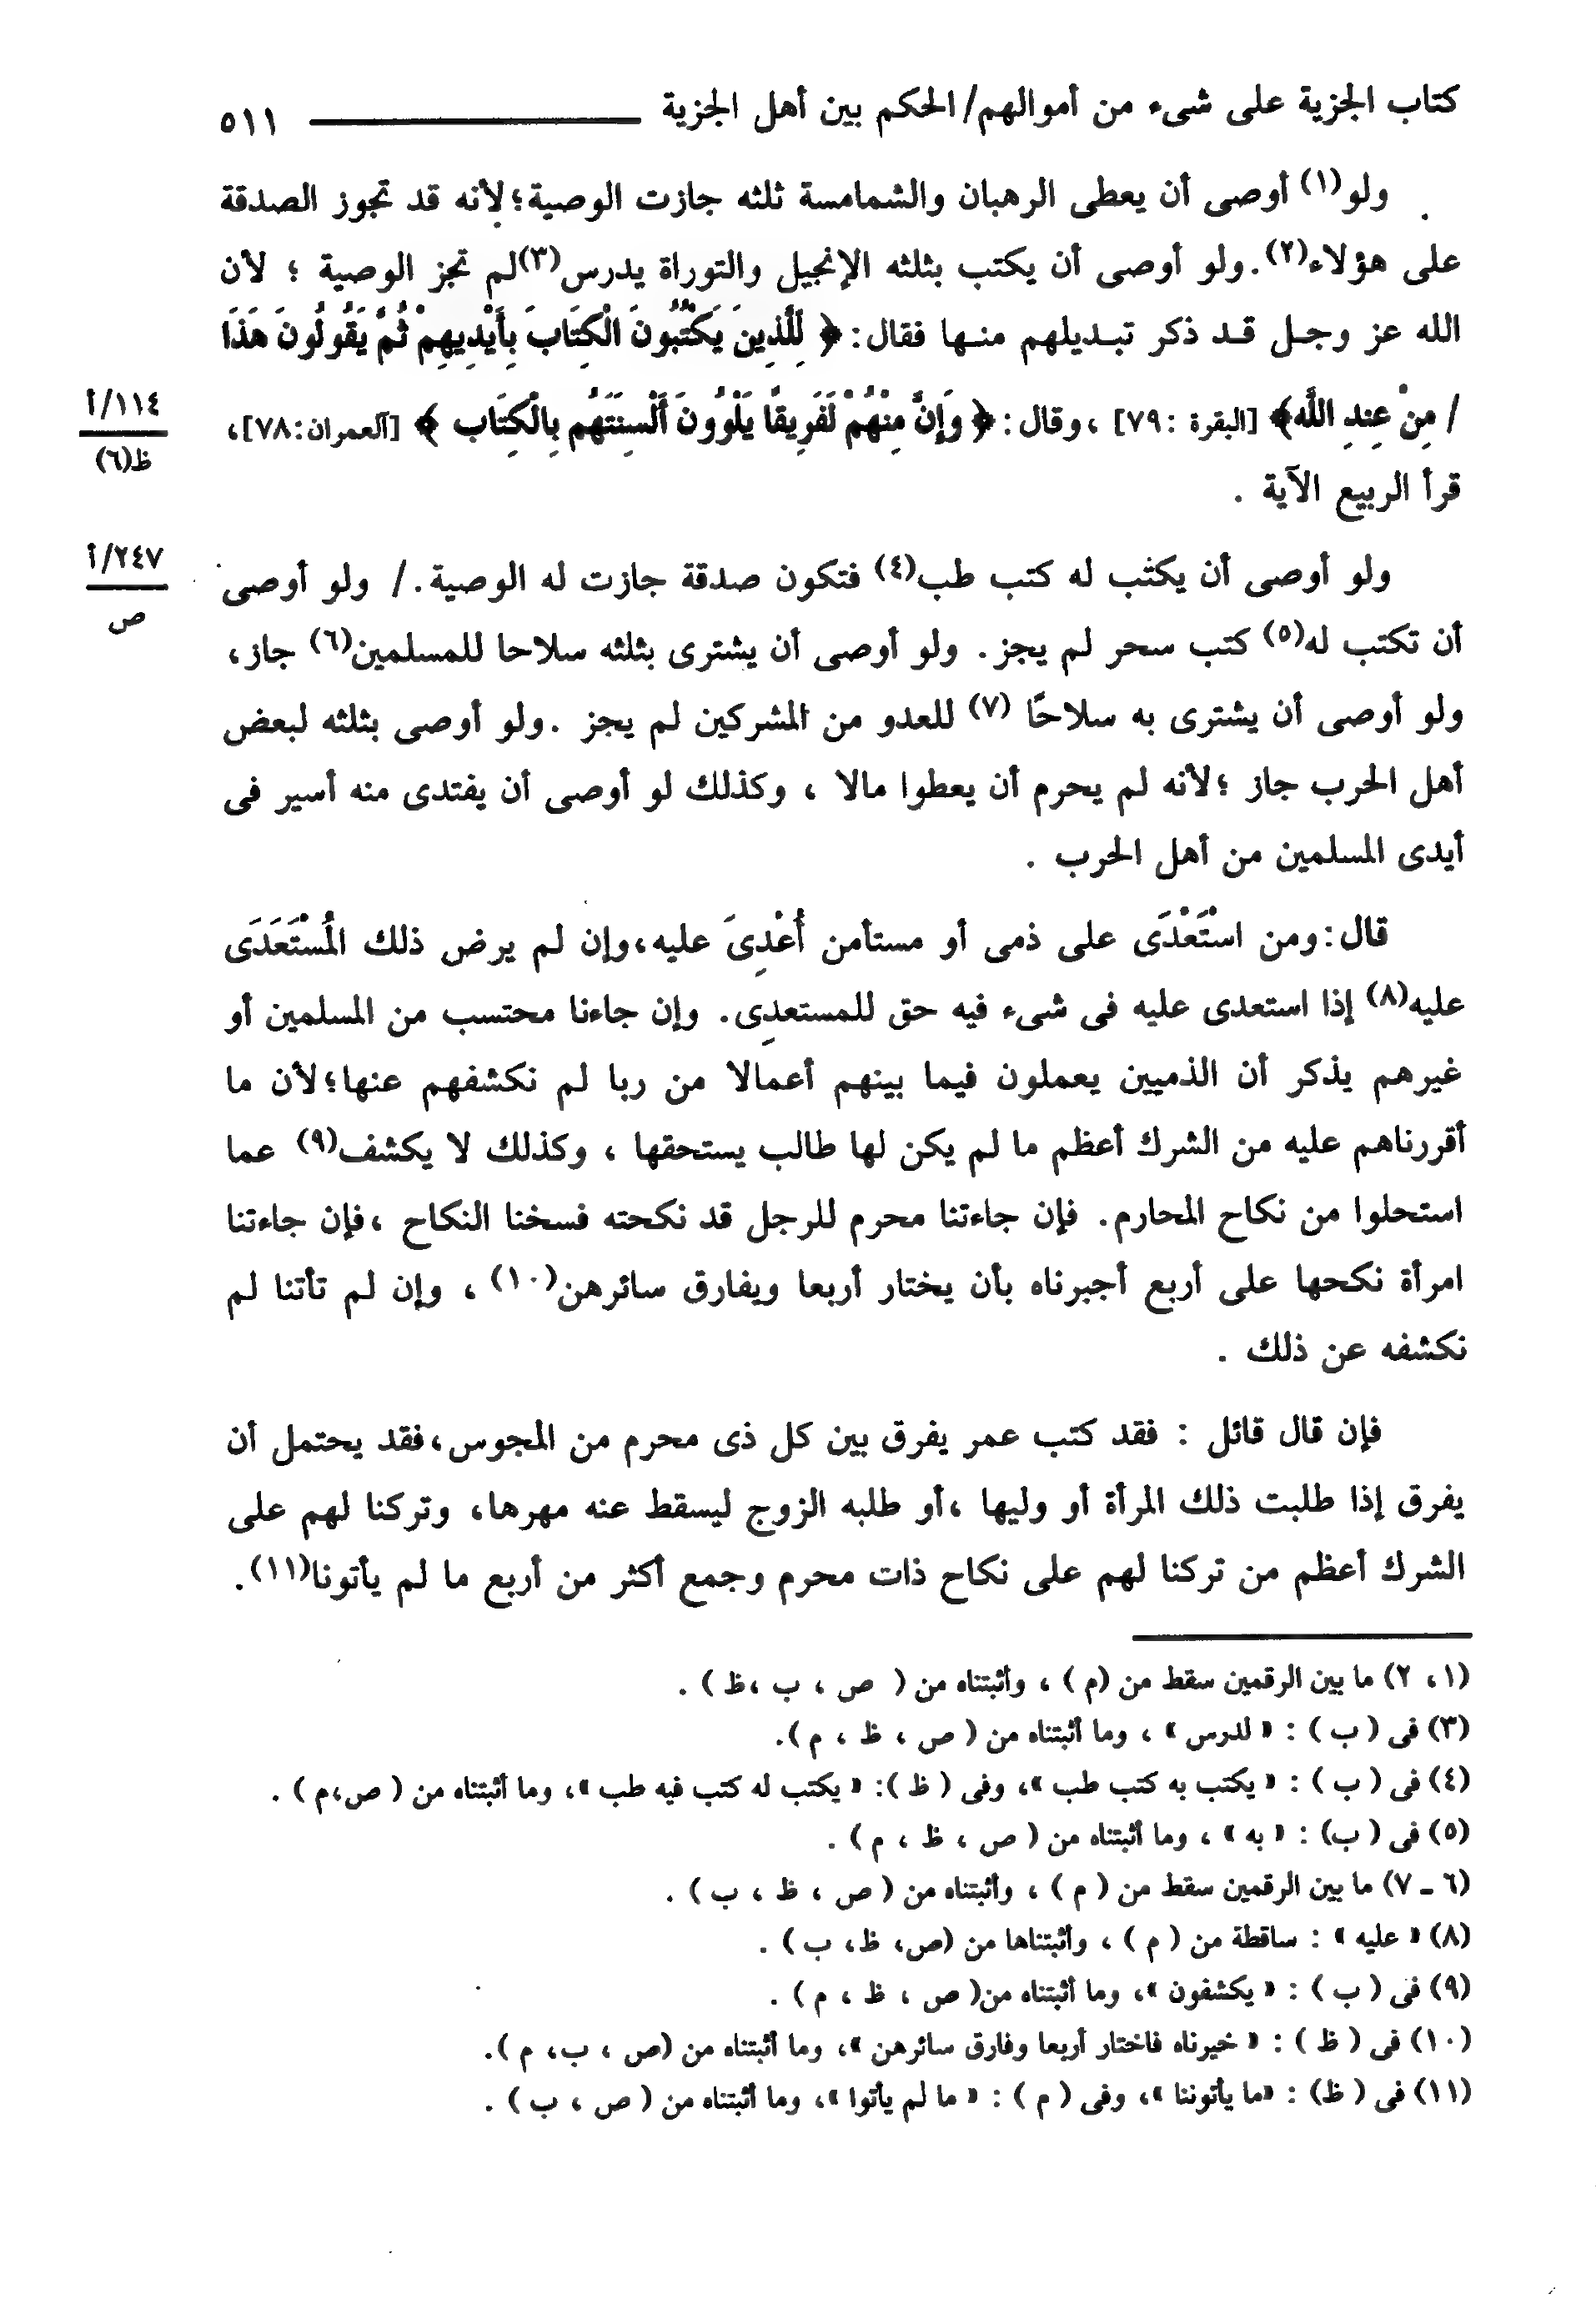 كتاب الجزية على شىء من أموالهم/الحكم بين أهل الجزية ٥١١
ولو(١) أوصى أن يعطى الرهبان والشمامسة ثلثه جازت الوصية؛لأنه قد تجوز الصدقة
على هؤلاء(٢).ولو أوصى أن يكتب بثلثه الإنجيل والتوراة يدرس(٣)لم تجز الوصية ؛ لأن
الله عز وجل قد ذكر تبديلهم منها فقال:﴿ لِلَّذِينَ يَكْتُبُونَ الْكِتَابَ بِأَيْدِيهِمْ ثُمَّ يَقُولُونَ هَذَا
/ مِنْ عِندِ اللَّه﴾ [البقرة :٧٩] ،وقال:﴿ وَإِنَّ مِنْهُمْ لَفَرِيقًا يَلْوُونَ أَلْسِنَتَهُم بِالْكِتَاب ﴾ [آلعمران:٧٨]،
١١٤/أ
ظ(٦)
قرأ الربيع الآية .
ولو أوصى أن يكتب له كتب طب(٤) فتكون صدقة جازت له الوصية./ ولو أوصى
٢٤٧/أ
ص
أن تكتب له(٥) كتب سحر لم يجز. ولو أوصى أن يشترى بثلثه سلاحا للمسلمين(٦) جاز،
ولو أوصى أن يشترى به سلاحًا (٧) للعدو من المشركين لم يجز .ولو أوصى بثلثه لبعض
أهل الحرب جاز ؛لأنه لم يحرم أن يعطوا مالا ، وكذلك لو أوصى أن يفتدى منه أسير فى
أيدى المسلمين من أهل الحرب .
قال:ومن اسْتَعْدَى على ذمى أو مستأمن أُعْدِىَ عليه،وإن لم يرض ذلك المُسْتَعَدَى
عليه(٨) إذا استعدى عليه فى شىء فيه حق للمستعدِى. وإن جاءنا محتسب من المسلمين أو
غيرهم يذكر أن الذميين يعملون فيما بينهم أعمالا من ربا لم نكشفهم عنها؛لأن ما
أقررناهم عليه من الشرك أعظم ما لم يكن لها طالب يستحقها ، وكذلك لا يكشف(٩) عما
استحلوا من نكاح المحارم. فإن جاءتنا محرم للرجل قد نكحته فسخنا النكاح ،فإن جاءتنا
امرأة نكحها على أربع أجبرناه بأن يختار أربعا ويفارق سائرهن(١٠) ، وإن لم تأتنا لم
نكشفه عن ذلك .
فإن قال قائل : فقد كتب عمر يفرق بين كل ذى محرم من المجوس،فقد يحتمل أن
يفرق إذا طلبت ذلك المرأة أو وليها ،أو طلبه الزوج ليسقط عنه مهرها، وتركنا لهم على
الشرك أعظم من تركنا لهم على نكاح ذات محرم وجمع أكثر من أربع ما لم يأتونا(١١).
(١، ٢) ما بين الرقمين سقط من (م ) ، وأثبتناه من ( ص ، ب ،ظ ) .
(٣) فى ( ب ) : « لدرس » ، وما أثبتناه من ( ص ، ظ ، م ).
(٤) فى ( ب ) : « يكتب به كتب طب »، وفى ( ظ ): « يكتب له كتب فيه طب »، وما أثبتناه من ( ص،م ) .
(٥) فى ( ب) : « به » ، وما أثبتناه من ( ص ، ظ ، م ) .
(٦ ـ ٧) ما بين الرقمين سقط من ( م ) ، وأثبتناه من ( ص ، ظ ، ب ) .
(٨) « عليه » : ساقطة من ( م ) ، وأثبتناها من (ص، ظ، ب ) .
(٩) فى ( ب ) : « يكشفون »، وما أثبتناه من( ص ، ظ ، م ) .
(١٠) فى ( ظ ) : « خيرناه فاختار أربعا وفارق سائرهن »، وما أثبتناه من (ص ، ب، م ).
(١١) فى ( ظ) : «ما يأتوننا »، وفى ( م ) : « ما لم يأتوا »، وما أثبتناه من ( ص ، ب ) .